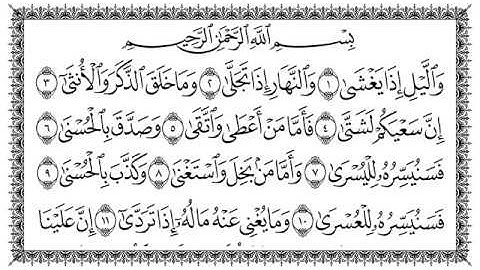 بِسْمِ اللَّهِ الرَّحْمَٰنِ الرَّحِيمِ
وَاللَّيْلِ إِذَا يَغْشَىٰ ١ وَالنَّهَارِ إِذَا تَجَلَّىٰ ٢ وَمَا خَلَقَ الذَّكَرَ وَالْأُنثَىٰ ٣
إِنَّ سَعْيَكُمْ لَشَتَّىٰ ٤ فَأَمَّا مَنْ أَعْطَىٰ وَاتَّقَىٰ ٥ وَصَدَّقَ بِالْحُسْنَىٰ ٦
فَسَنُيَسِّرُهُ لِلْيُسْرَىٰ ٧ وَأَمَّا مَنْ بَخِلَ وَاسْتَغْنَىٰ ٨ وَكَذَّبَ بِالْحُسْنَىٰ ٩
فَسَنُيَسِّرُهُ لِلْعُسْرَىٰ ١٠ وَمَا يُغْنِي عَنْهُ مَالُهُ إِذَا تَرَدَّىٰ ١١ إِنَّ عَلَيْنَا